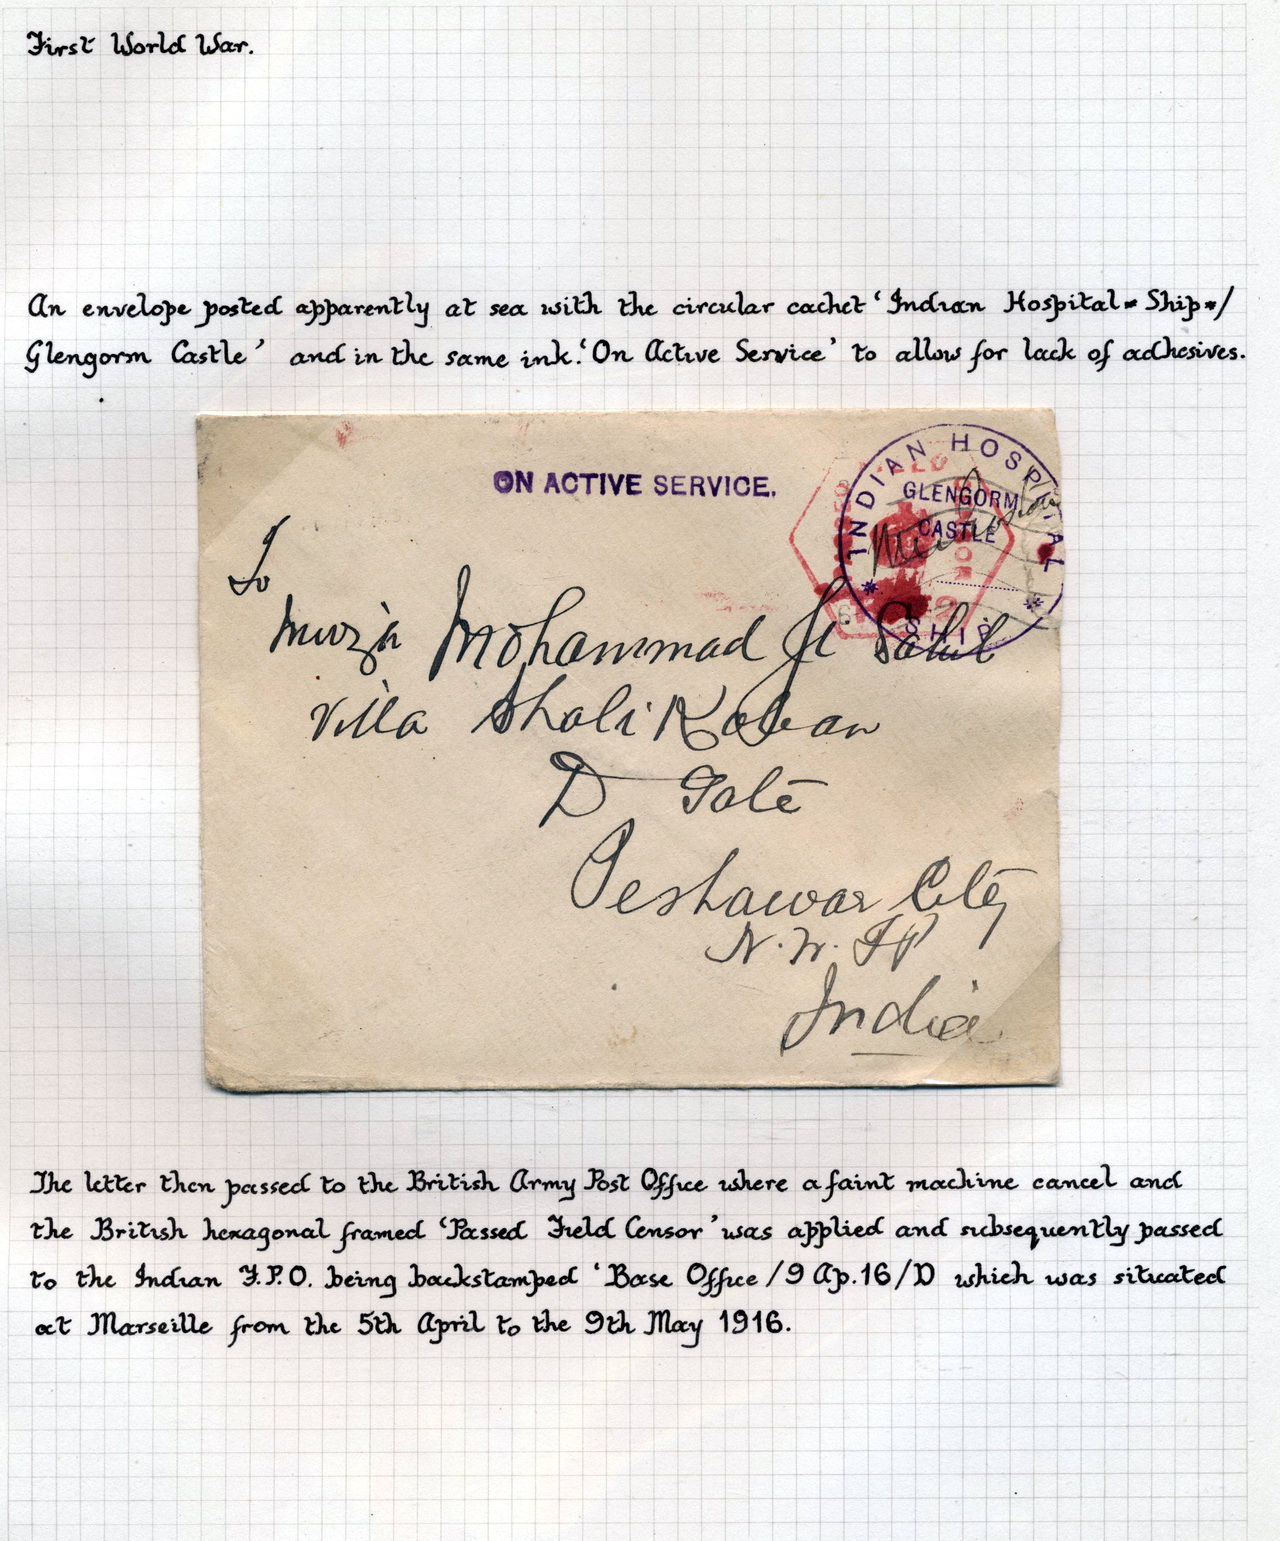 First World War.
An envelope posted apparently at sea with the circular cachet 'Indian Hospital * Ship */
Glengorm Castle' and in the same ink 'On Active Service' to allow for lack of adhesives.
ON ACTIVE SERVICE.
INDIAN HOSPITAL
GLENGORM
CASTLE
* SHIP *
To
Mirza Mohammad Ji Sahib
Villa Shali
D Gate
Peshawar City
N.W.FP
India
The letter then passed to the British Army Post Office where a faint machine cancel and
the British hexagonal framed 'Passed Field Censor' was applied and subsequently passed
to the Indian F.P.O. being backstamped 'Base Office/9 Ap.16/D which was situated
at Marseille from the 5th April to the 9th May 1916.